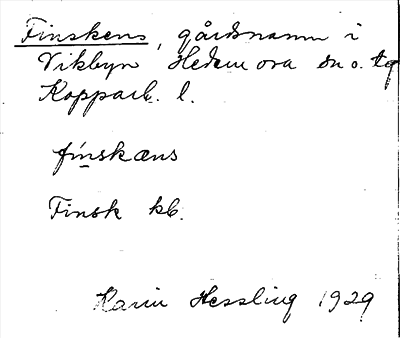 Finskens, gårdsnamn i
Vikbyn Hedemora sn o. tg
Kopparb. l.
finskæns
Finsk kb.
Karin Hessling 1929